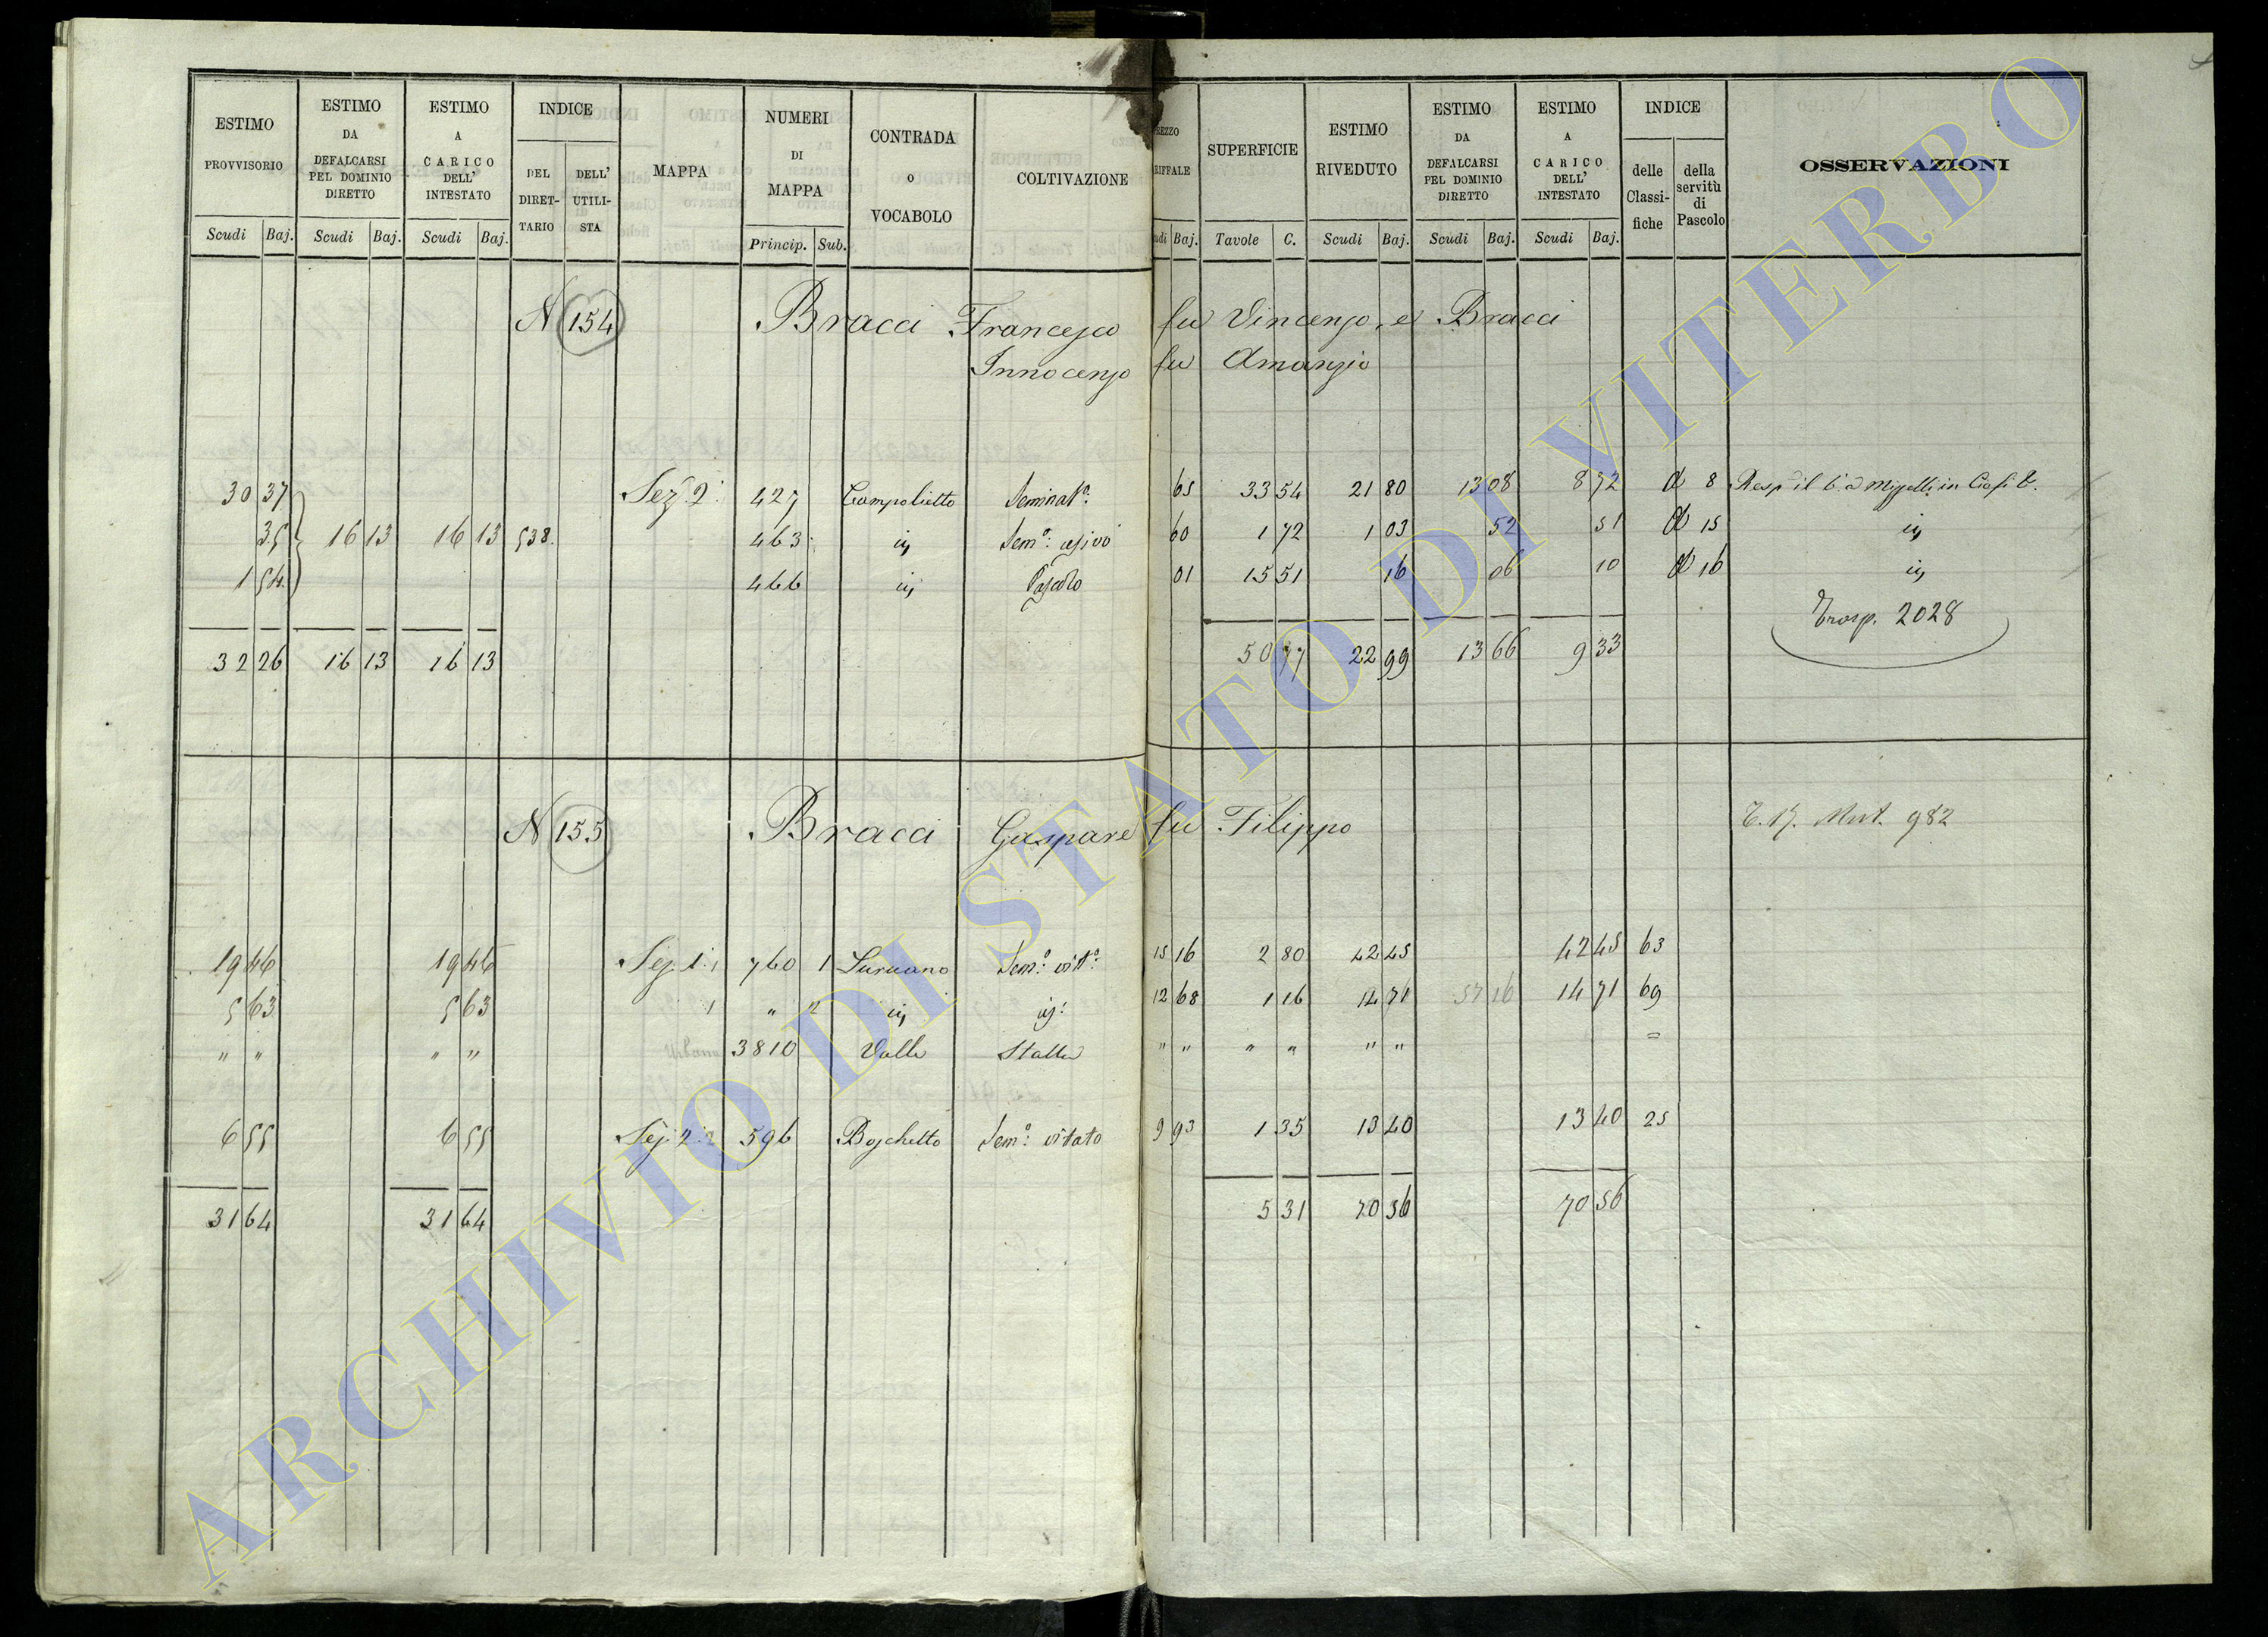 ESTIMO PROVVISORIO Scudi Baj.
ESTIMO DA DEFALCARSI PEL DOMINIO DIRETTO Scudi Baj.
ESTIMO A CARICO DELL' INTESTATO Scudi Baj.
INDICE DEL DIRETTARIO DELL' UTILISTA
MAPPA
NUMERI DI MAPPA Princip. Sub.
CONTRADA O VOCABOLO
COLTIVAZIONE
SUPERFICIE Tavole C.
ESTIMO RIVEDUTO Scudi Baj.
ESTIMO DA DEFALCARSI PEL DOMINIO DIRETTO Scudi Baj.
ESTIMO A CARICO DELL' INTESTATO Scudi Baj.
INDICE delle Classifiche della servitù di Pascolo
OSSERVAZIONI
N 154 Bracci Francesco fu Vincenzo, e Bracci
Innocenzo fu Amanzio
30 37 Sez. 2 427 Campolietto Seminat.o 65 33 54 21 80 13 08 8 72 8
35 16 13 16 13 538. 463 60 1 72 1 03 52 51 15
1 54 466 Pascolo 01 15 51 16 06 10 16
Trasp. 2028
32 26 16 13 16 13 50 77 22 99 13 66 9 33
N 155 Bracci Gaspare fu Filippo 982
19 46 19 46 Sez. 1 760 1 Sem.o vit.o 15 16 2 80 42 45 42 45 63
5 63 5 63 1 " 2 12 68 1 16 14 71 57 16 14 71 69
" " " " 3810 Valle Stalla " " " " " " =
6 55 6 55 Sez. 2 596 Boschetto Sem.o vitato 9 93 1 35 13 40 13 40 25
31 64 31 64 5 31 70 56 70 56
ARCHIVIO DI STATO DI VITERBO